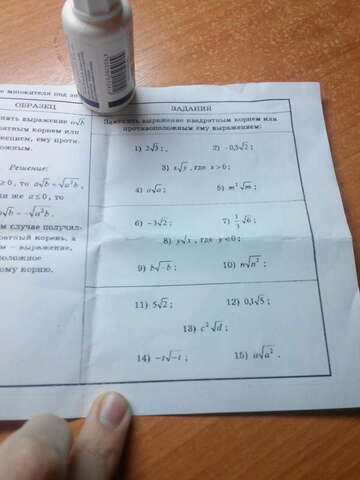 множителя под зн
ОБРАЗЕЦ
нить выражение a√b
ратным корнем или
жением, ему проти-
ожным.
Решение:
≥ 0, то a√b = √a²b,
ли же a ≤ 0, то
√b = −√a²b.
м случае получил-
ратный корень, а
м – выражение,
положное
ому корню.
ЗАДАНИЯ
Заменить выражение квадратным корнем или
противоположным ему выражением:
1) 2√3; 2) −0,3√2;
3) x√y, где x > 0;
4) a√a; 5) m²√m;
6) −3√2; 7) 1/3√6;
8) y√x, где y < 0;
9) b√−b; 10) n√n²;
11) 5√2; 12) 0,1√5;
13) c²√d;
14) −t√−t; 15) a√a².